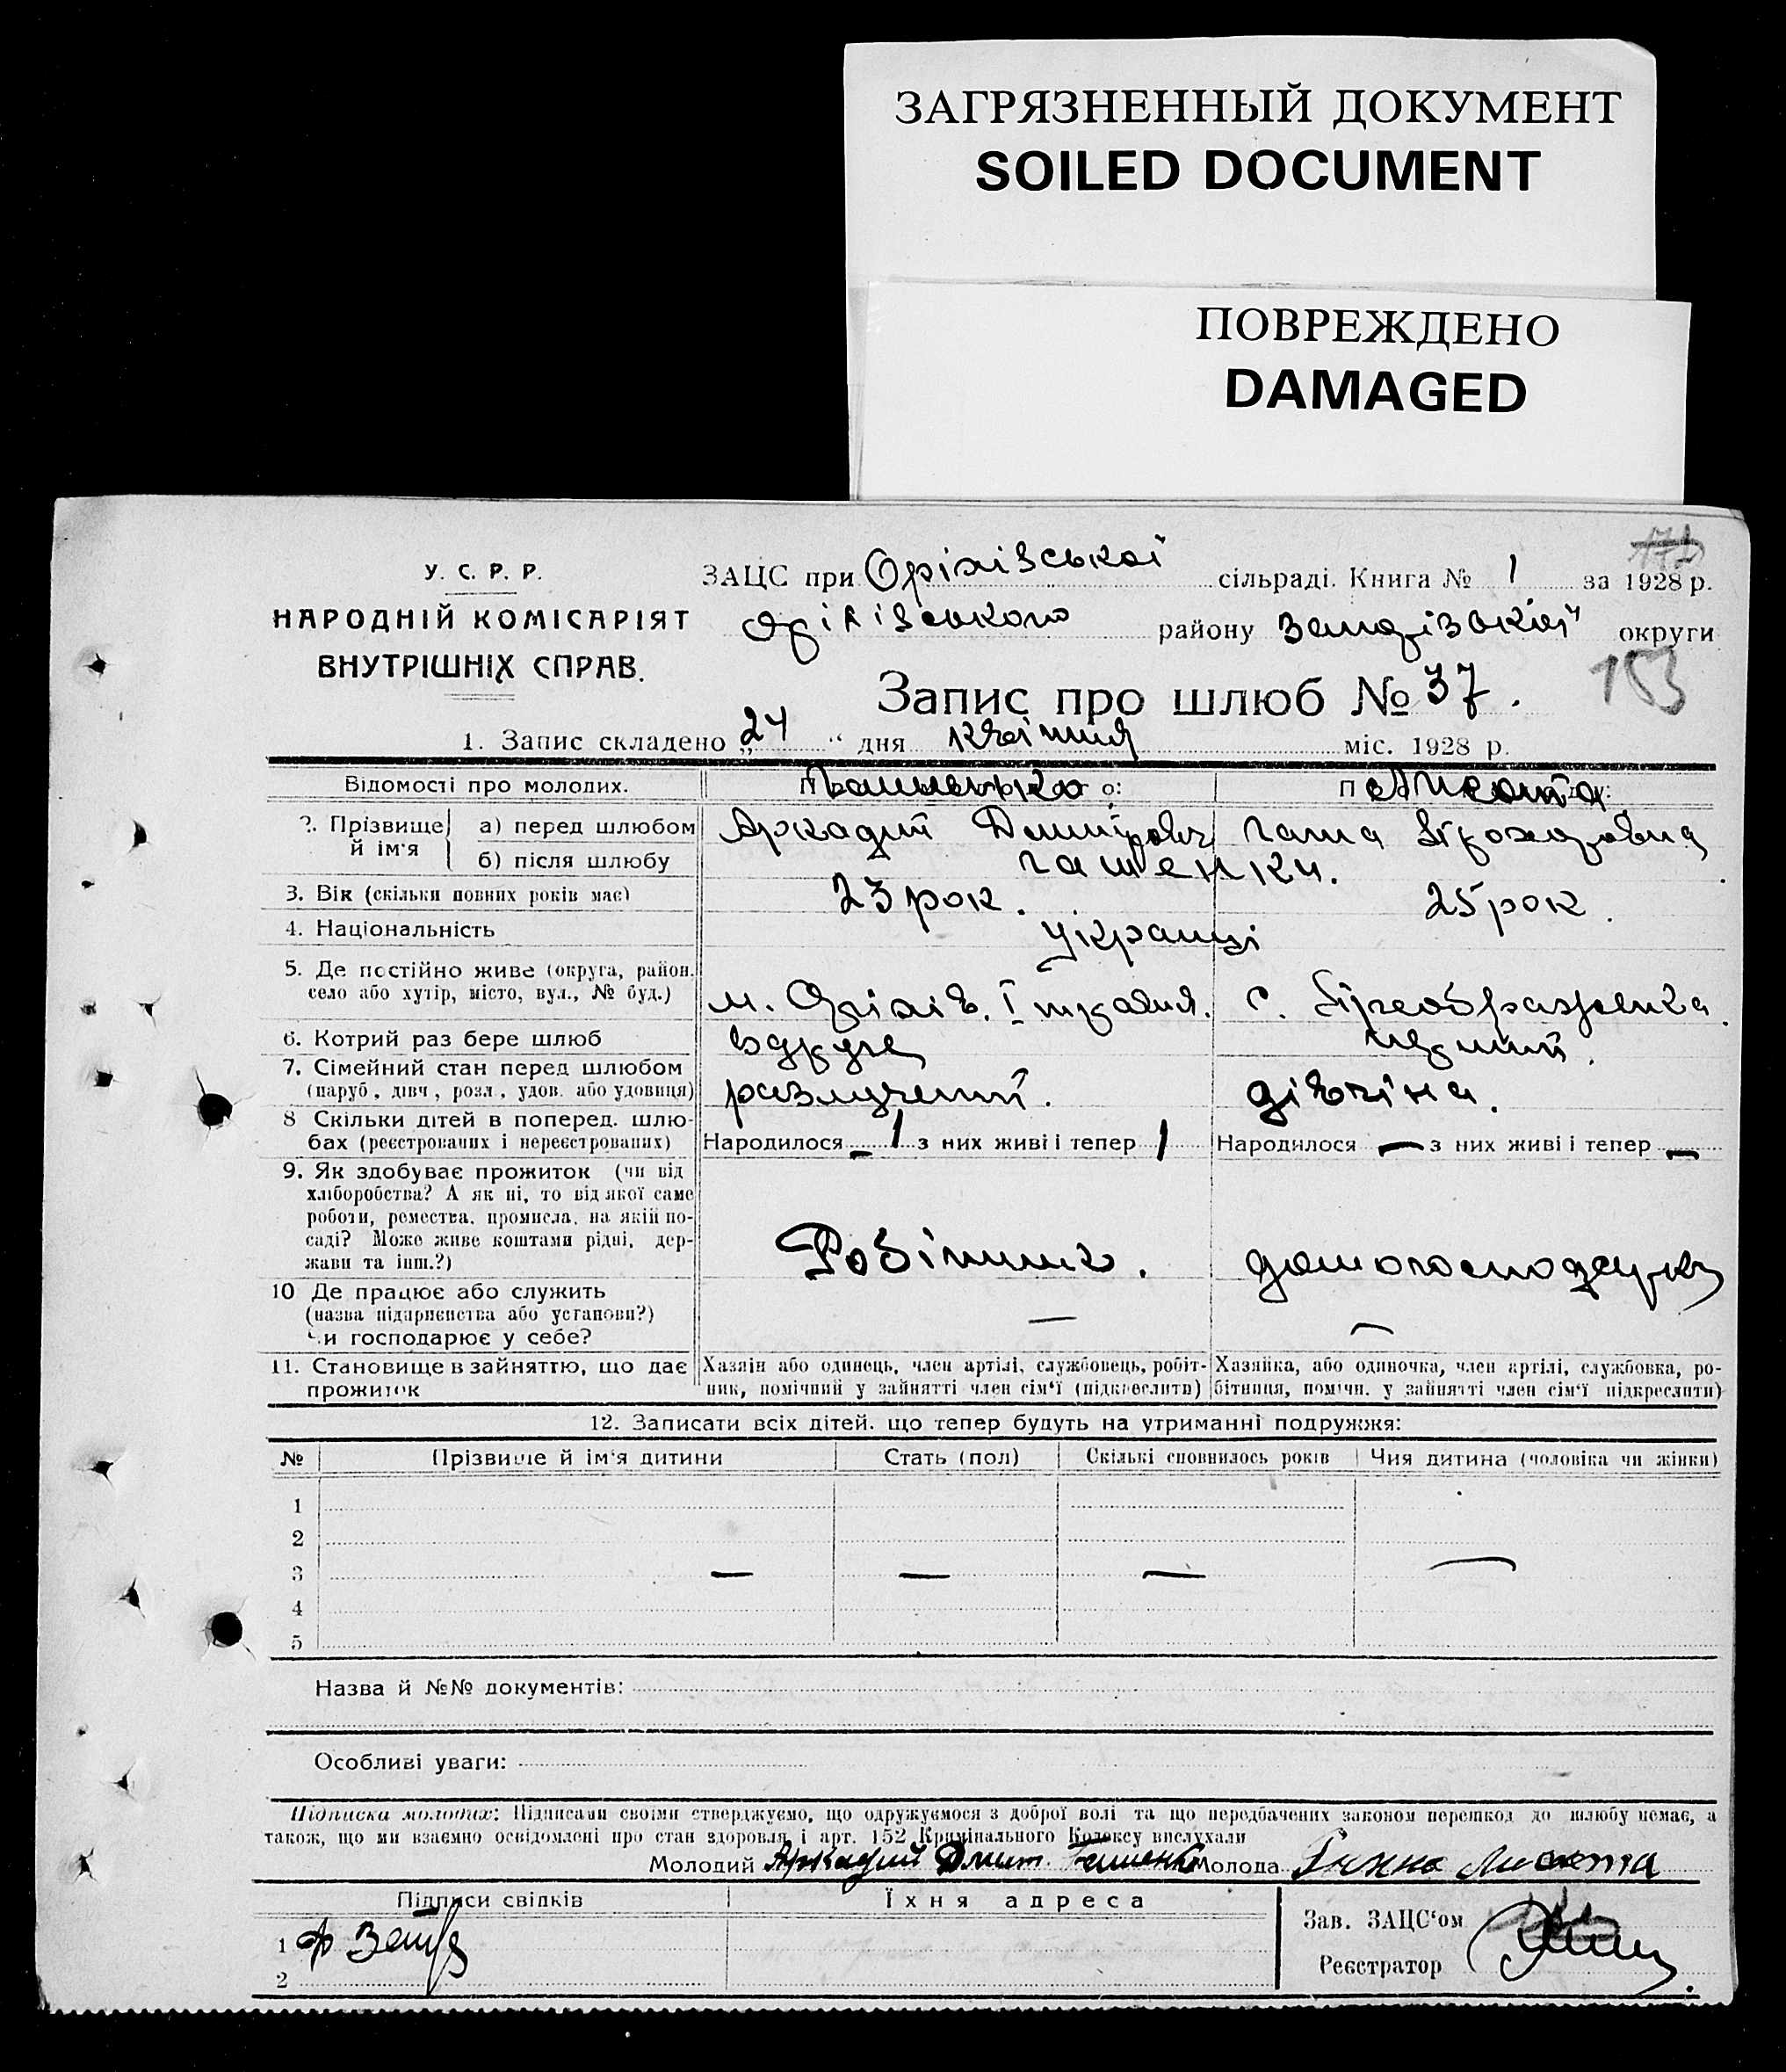 ЗАГРЯЗНЕННЫЙ ДОКУМЕНТ
SOILED DOCUMENT
ПОВРЕЖДЕНО
DAMAGED
У. С. Р. Р.
НАРОДНІЙ КОМІСАРІЯТ
ВНУТРІШНІХ СПРАВ.
ЗАЦС при Оріхівської сільраді. Книга № 1 за 1928 р.
Оріхівського району Запорізької округи
153
Запис про шлюб № 37.
1. Запис складено „24“ дня квітня міс. 1928 р.
Відомості про молодих.
2. Прізвище й ім'я
а) перед шлюбом Аркадий
б) після шлюбу Гашенки.
3. Вік (скільки повних років має) 23 рок. 25 рок.
4. Національність українці
5. Де постійно живе (округа, район, село або хутір, місто, вул., № буд.) м. Оріхів. І травня. с. Преображенка.
6. Котрий раз бере шлюб вдруге первий.
7. Сімейний стан перед шлюбом (паруб., дівч., розл., удов. або удовиця) разлучений. дівчіна.
8 Скільки дітей в поперед. шлюбах (реєстрованих і нереєстрованих) Народилося 1 з них живі і тепер 1 Народилося — з них живі і тепер —
9. Як здобуває прожиток (чи від хліборобства? А як ні, то від якої саме роботи, ремества, промисла, на якій посаді? Може живе коштами рідні, держави та інш.?) Робітник. домогосподарка
10 Де працює або служить (назва підприємства або установи?) Чи господарює у себе? — —
11. Становище в зайняттю, що дає прожиток
Хазяїн або одинець, член артілі, службовець, робітник, помічний у зайнятті член сім'ї (підкреслити)
Хазяйка, або одиночка, член артілі, службовка, робітниця, помічн. у зайнятті член сім'ї підкреслити)
12. Записати всіх дітей, що тепер будуть на утриманні подружжя:
№ Прізвище й ім'я дитини Стать (пол) Скількі сповнилось років Чия дитина (чоловіка чи жінки)
1
2
3 — — — —
4
5
Назва й №№ документів:
Особливі уваги:
Підписка молодих: Підписами своїми стверджуємо, що одружуємося з доброї волі та що передбачених законом перешкод до шлюбу немає, а
також, що ми взаємно освідомлені про стан здоровля і арт. 152 Кримінального Кодексу вислухали
Молодий Аркадий Дмит. Гашенко Молода Ганна Лисота
Підписи свідків Їхня адреса
Зав. ЗАЦС'ом
1
Реєстратор
2